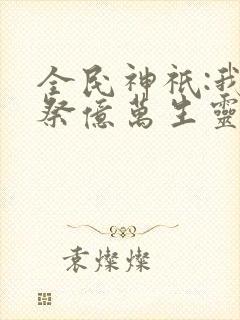 全民神祇:我
祭億萬生靈
袁燦燦